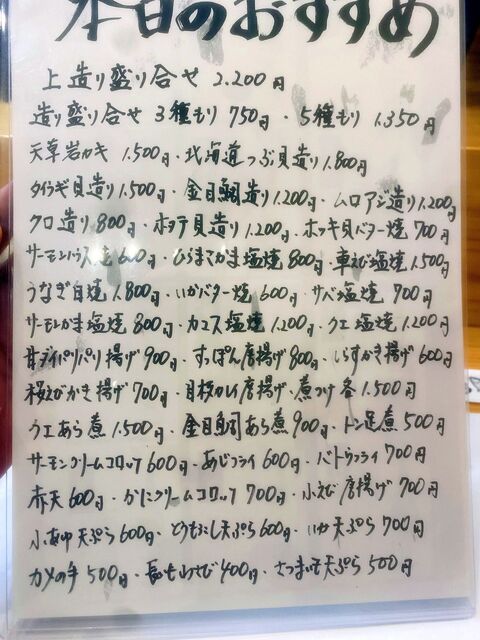 本日のおすすめ
上造り盛り合せ 2.200円
造り盛り合せ 3種もり 750円・5種もり 1.350円
天草岩カキ 1.500円・北海道つぶ貝造り 1.800円
タイラギ貝造り 1.500円・金目鯛造り 1.200円・ムロアジ造り 1.200円
クロ造り 800円・ホタテ貝造り 1.200円・ホッキ貝バター焼 700円
サーモンハラス焼 600円・ひらまさかま塩焼 800円・車えび塩焼 1.500円
うなぎ白焼 1.800円・いかバター焼 600円・サバ塩焼 700円
サーモンかま塩焼 800円・カマス塩焼 1.200円・クエ塩焼 1.200円
甘ダイパリパリ揚げ 900円・すっぽん唐揚げ 800円・しらすかき揚げ 600円
桜えびかき揚げ 700円・目板カレイ唐揚げ・煮つけ各 1.500円
クエあら煮 1.500円・金目鯛あら煮 900円・トン足煮 500円
サーモンクリームコロッケ 600円・あじフライ 600円・バトウフライ 700円
赤天 600円・かにクリームコロッケ 700円・小えび唐揚げ 700円
小あゆ天ぷら 600円・とうもろこし天ぷら 600円・いか天ぷら 700円
カメの手 500円・長いもわさび 400円・さつまいも天ぷら 500円